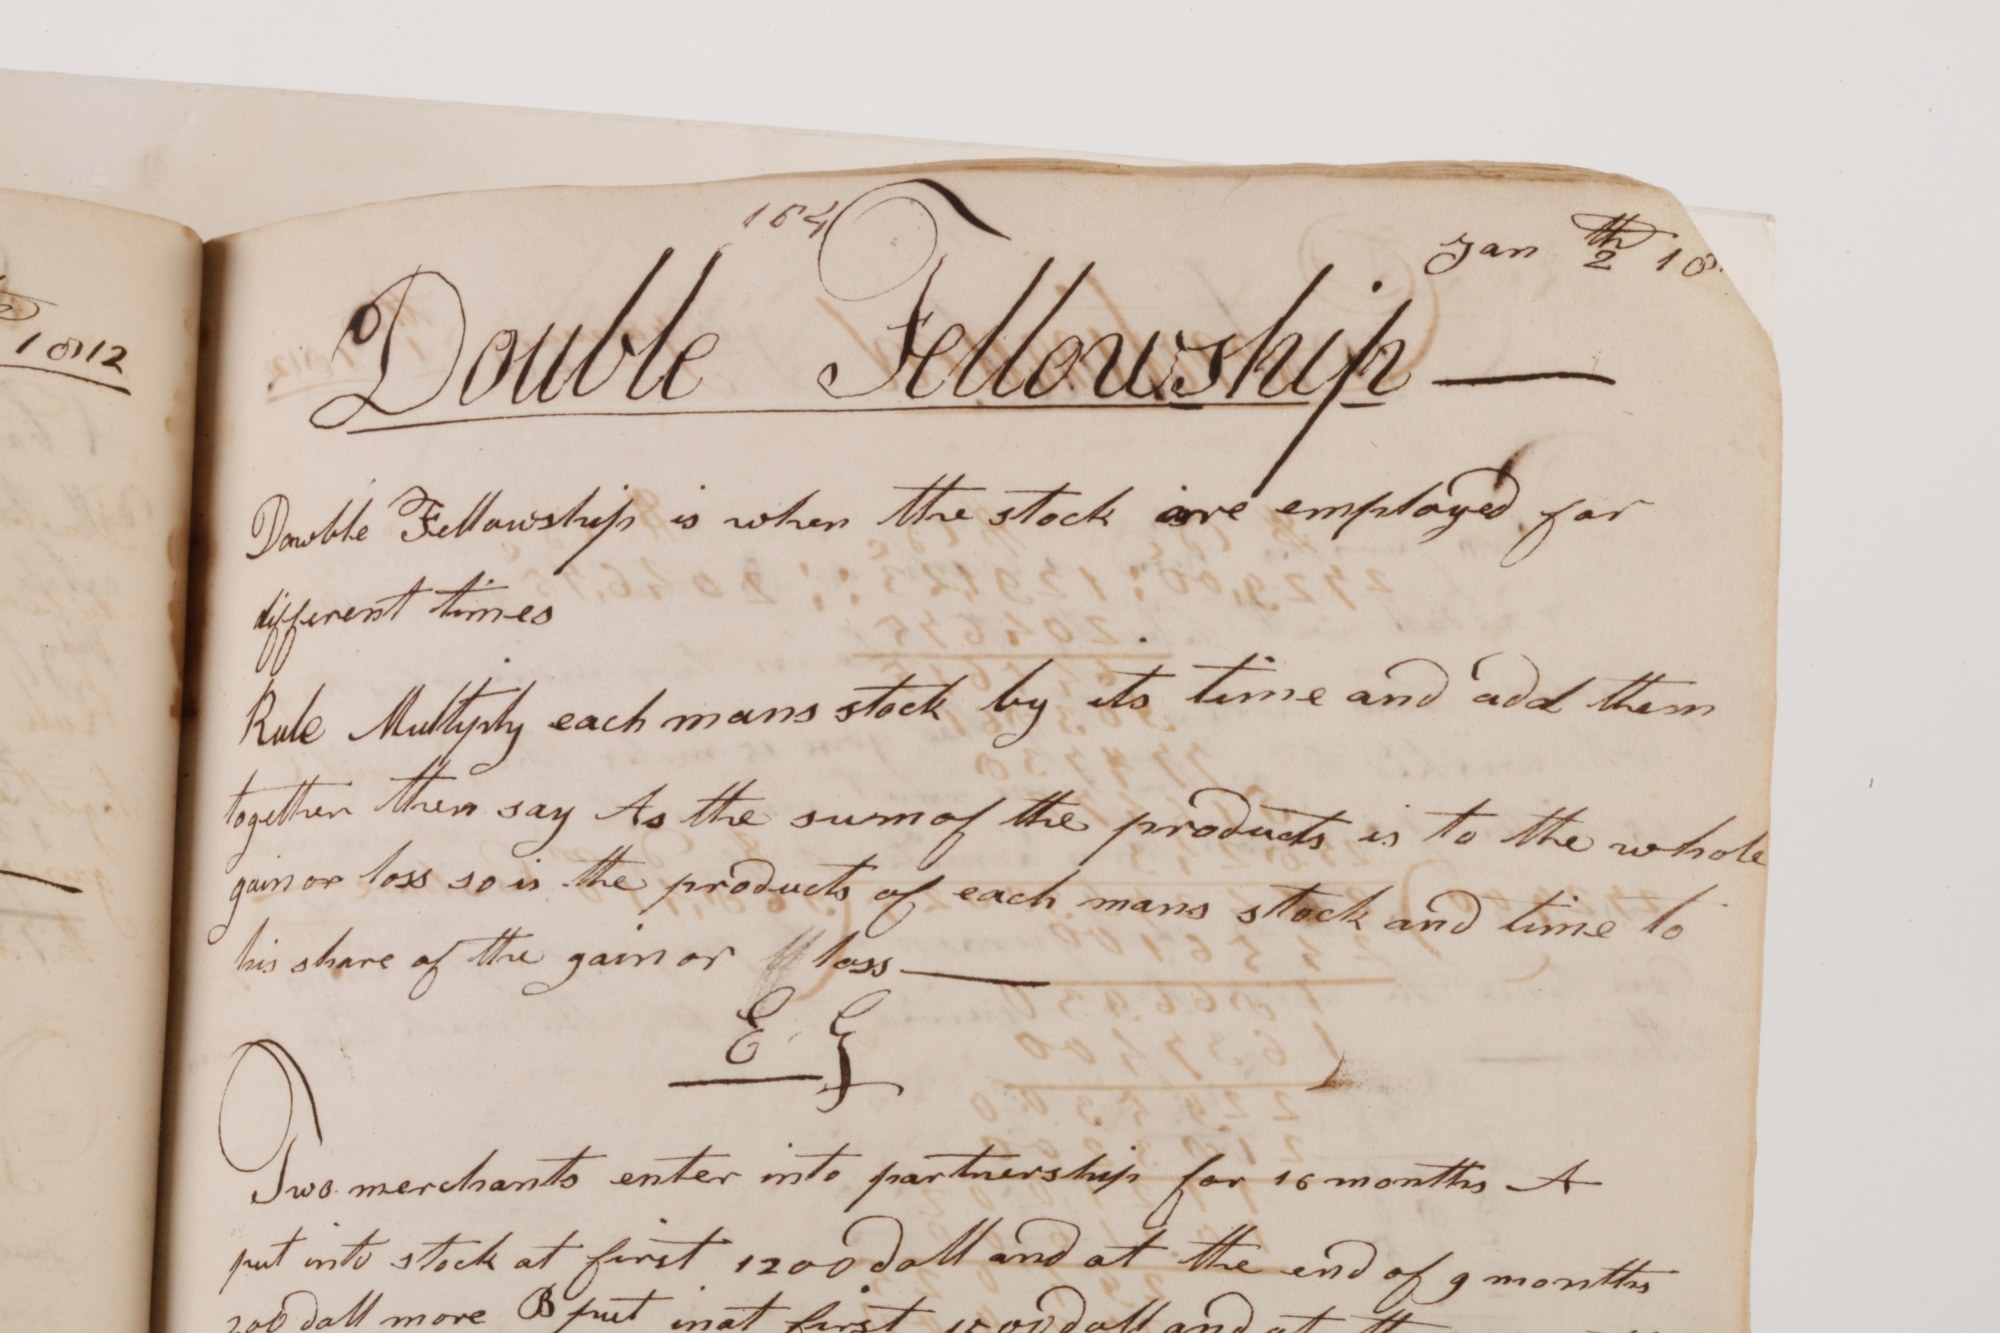 1812
164
Jan 2th 18
Double Fellowship
Double Fellowship is when the stock are employed for
different times
Rule Multiply each mans stock by its time and add them
together then say As the sum of the products is to the whole
gain or loss so is the products of each mans stock and time to
his share of the gain or loss
E G
Two merchants enter into partnership for 16 months A
put into stock at first 1200 doll and at the end of 9 months
200 doll more B put in at first 1500 doll and at the